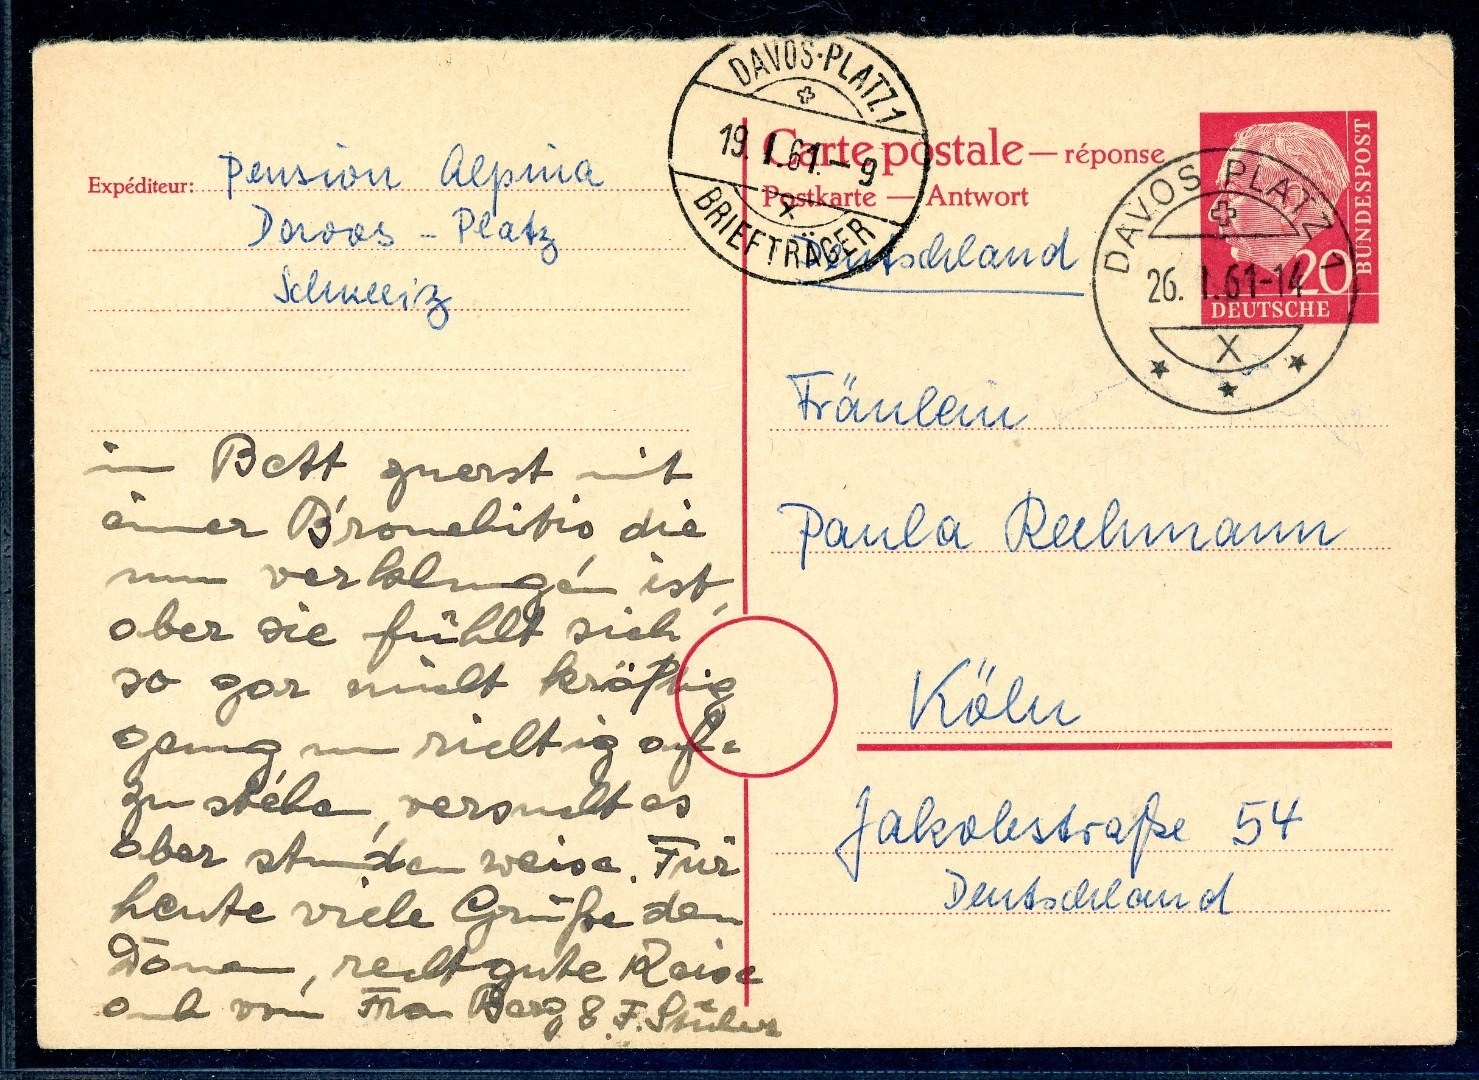 DAVOS-PLATZ 1
19. I. 61.–9
X
BRIEFTRÄGER
Carte postale — réponse
Postkarte — Antwort
Deutschland
DAVOS PLATZ 1
26. I. 61-14
X
BUNDESPOST
20
DEUTSCHE
Expéditeur: Pension Alpina
Davos - Platz
Schweiz
Fräulein
Paula
Köln
Jakobstraße 54
Deutschland
im Bett zuerst mit
einer Bronchitis die
nun verklungen ist,
aber sie fühlt sich
so gar nicht kräftig
genug um richtig auf-
zustehen, versucht es
aber stundenweise. Für
heute viele Grüße den
Damen, recht gute Reise
auch von Frau Berg & F. Stüber